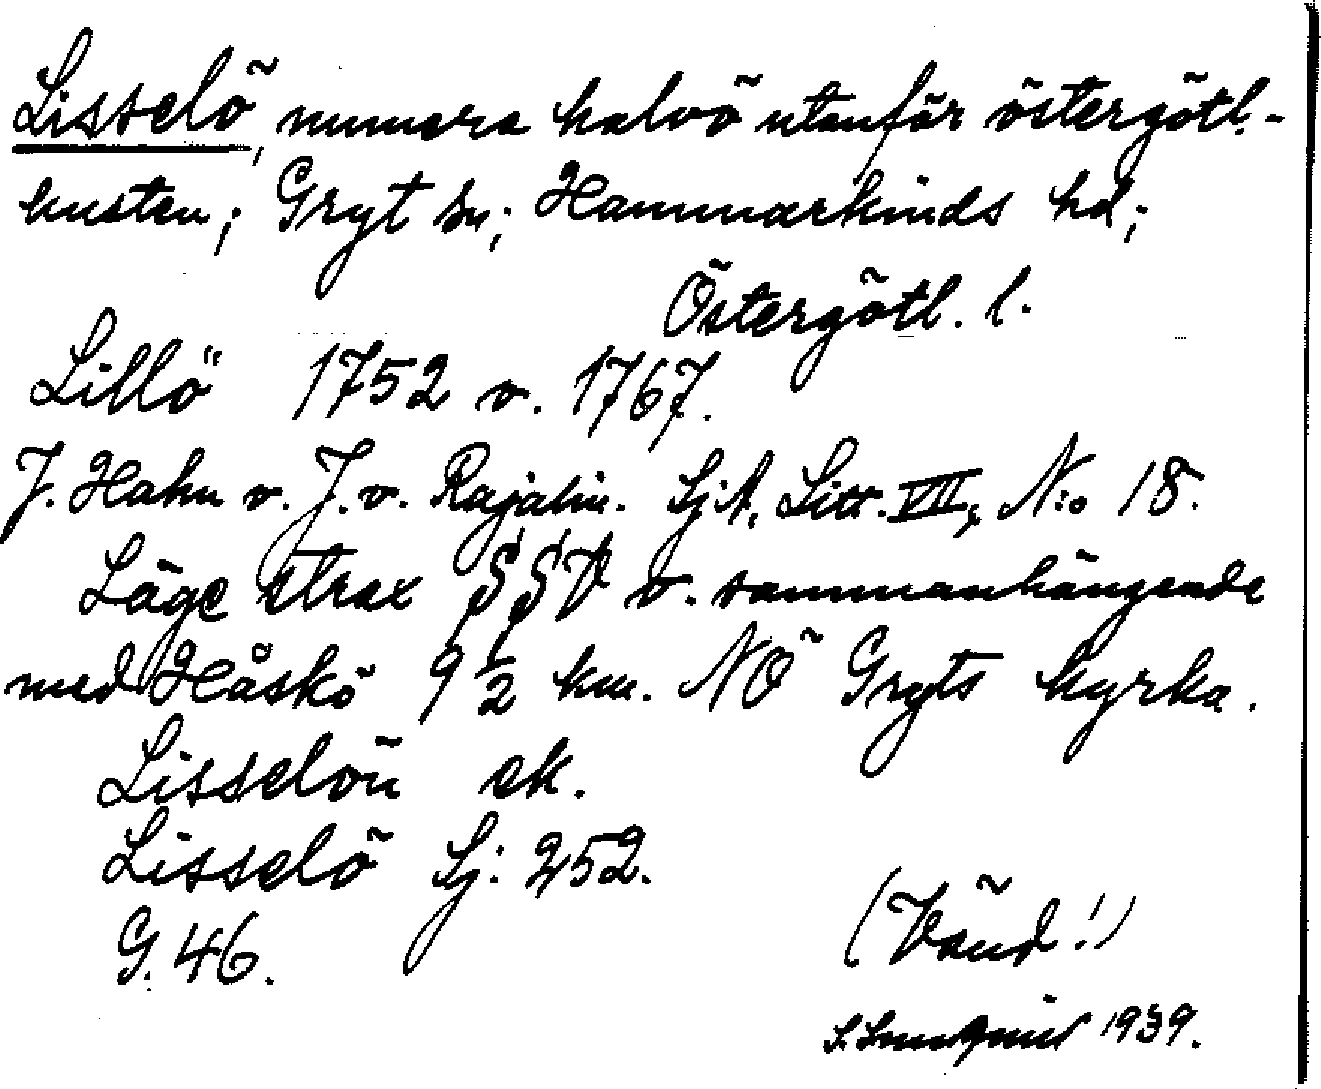 Lisselö, numera halvö utanför östergötl.-
kusten; Gryt sn; Hammarkinds hd;
Östergötl. l.
Lillö 1752 v. 1767.
J. Hahn v. J. v. Rajalin. SjA, Litt. VII, N:o 18.
Läge strax SSV v. sammanhängande
med Håskö 9 1/2 km. NÖ Gryts kyrka.
Lisselön ek.
Lisselö Sj: 252.
G. 46.
(Vänd!)
1939.